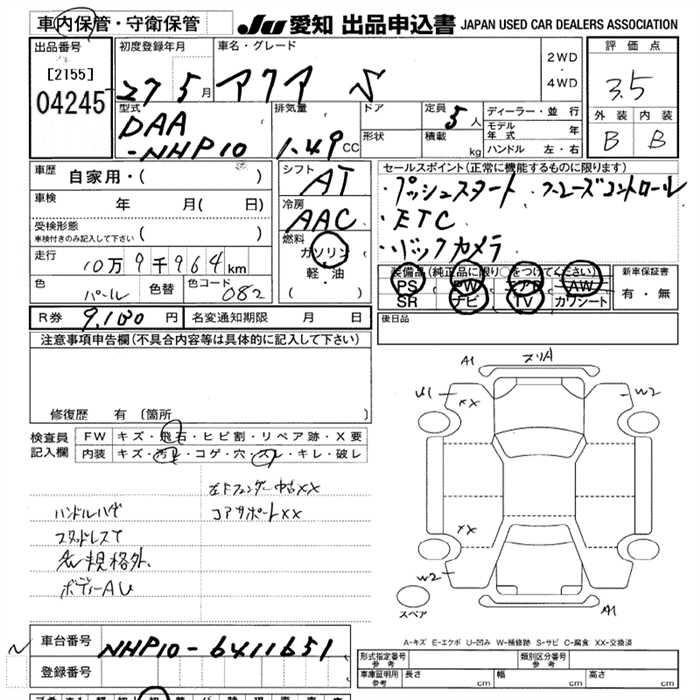 車内保管・守衛保管
JU 愛知 出品申込書 JAPAN USED CAR DEALERS ASSOCIATION
出品番号
[2155]
04245
初度登録年月
27 5月
車名・グレード
アクア S
2WD
・
4WD
評価点
3.5
外装 内装
B B
型式
DAA
-NHP10
排気量
1.49 CC
ドア
形状
定員
5人
積載
kg
ディーラー・並行
モデル年式 年
ハンドル 左・右
車歴
自家用・( )
車検
年 月( 日)
受検形態
車検付きのみ記入して下さい ( )
走行
10万9千964km
色
パール
色替
色コード
082
シフト
AT
冷房
AAC
燃料
ガソリン
・
軽・油
( )
セールスポイント(正常に機能するものに限ります)
・プッシュスタート クルーズコントロール
・ETC
・バックカメラ
装備品(純正品に限り○をつけてください)
PS PW エアB AW
SR ナビ TV カワシート
新車保証書
有・無
後日品
R券 9,180円 名変通知期限 月 日
注意事項申告欄(不具合内容等は具体的に記入して下さい)
修復歴 有(箇所 )
検査員
記入欄
FW キズ・飛石・ヒビ割・リペア跡・X要
内装 キズ・汚レ・コゲ・穴・スレ・キレ・破レ
左Fフェンダー中古XX
コアサポートXX
ハンドルハゲ
スタッドレスで
規格外、
ボディーAU
A1
U1
XX
W2
XX
W2
A1
スペア
A-キズ E-エクボ U-凹み W-補修跡 S-サビ C-腐食 XX-交換済
車台番号 NHP10-6411651
登録番号
形式指定番号
参考
類別区分番号
参考
車庫証明用
参考
長さ cm 幅 cm 高さ cm